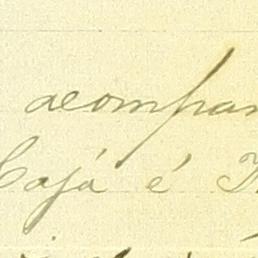 acompan
Cajá é